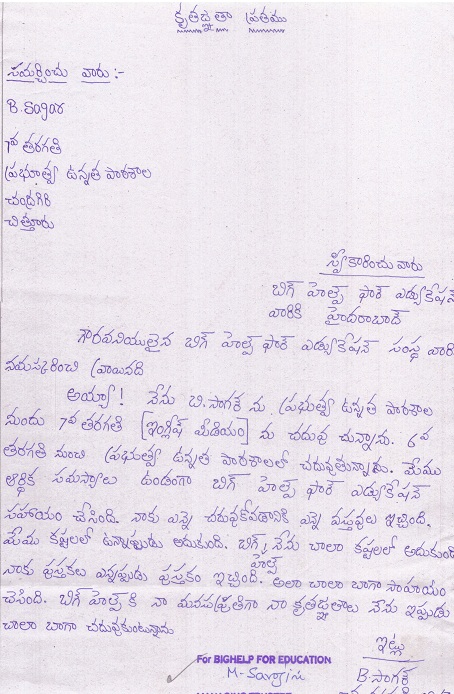 కృతజ్ఞతా పత్రము
సమర్పించు వారు :-
B. Sagar
7వ తరగతి
ప్రభుత్వ ఉన్నత పాఠశాల
చంద్రగిరి
చిత్తూరు
స్వీకారించు వారు
బిగ్ హెల్ప్ ఫార్ ఎడ్యుకేషన్
వారికి హైదరాబాద్
గౌరవనియులైన బిగ్ హెల్ప్ ఫార్ ఎడ్యుకేషన్ సంస్థ వారి
నమస్కరించి వ్రాయునది
అయ్యా! నేను బి.సాగర్ ను ప్రభుత్వ ఉన్నత పాఠశాల
నుందు 7వ తరగతి [ఇంగ్లీష్ మీడియం] ను చదువ చున్నాను. 6వ
తరగతి నుంచి ప్రభుత్వ ఉన్నత పాఠశాలలో చదువుతున్నాడు. మేము
ఆర్థిక సమస్యాలు ఉండంగా బిగ్ హెల్ప్ ఫార్ ఎడ్యుకేషన్
సహాయం చేసింది. నాకు ఎన్నె చదుకోవడానికి ఎన్నె వస్తువులు ఇచ్చింది.
మేము కష్టలలో ఉన్నప్పుడు అదుకుంది. బిగ్ హెల్ప్ నేను చాలా కష్టలలో అదుకుంది
నాకు పుస్తకలు ఎన్నప్పుడు పుస్తకం ఇచ్చింది. అలా చాలా బాగా సాహాయం
చేసింది. బిగ్ హెల్ప్ కి నా నా కృతజ్ఞతాలు నేను ఇప్పుడు
చాలా బాగా చదువుకుంటున్నాను
ఇట్లు
For BIGHELP FOR EDUCATION
B.సాగర్